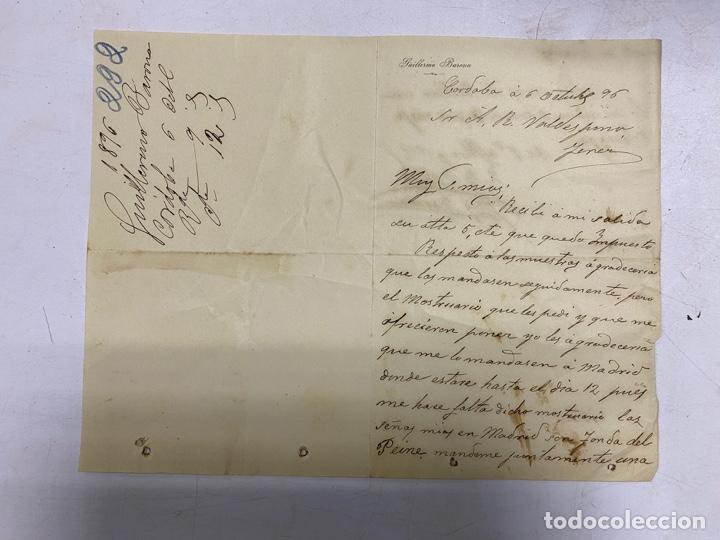 292
1896
Guillermo Barona
Córdoba 6 Octbre
Rda 9 "
Cda 12 "
Guillermo Barona
Cordoba á 6 Octubre 96
Sor A. R. Valdespino
Jerez
Muy S. mios; Recibi á mi salida
su atta 5, cte que quedo impuesto
Respecto á las muestras agradeceria
que las mandasen seguidamente, pero
el Mostruario que les pedi y que me
ofrecieron poner yo les agradeceria
que me lo mandasen á Madrid
donde estare hasta el dia 12 pues
me hace falta dicho mostruario las
señas mias en Madrid son Fonda del
Peine, mandeme juntamente una
todocoleccion
todocoleccion.net